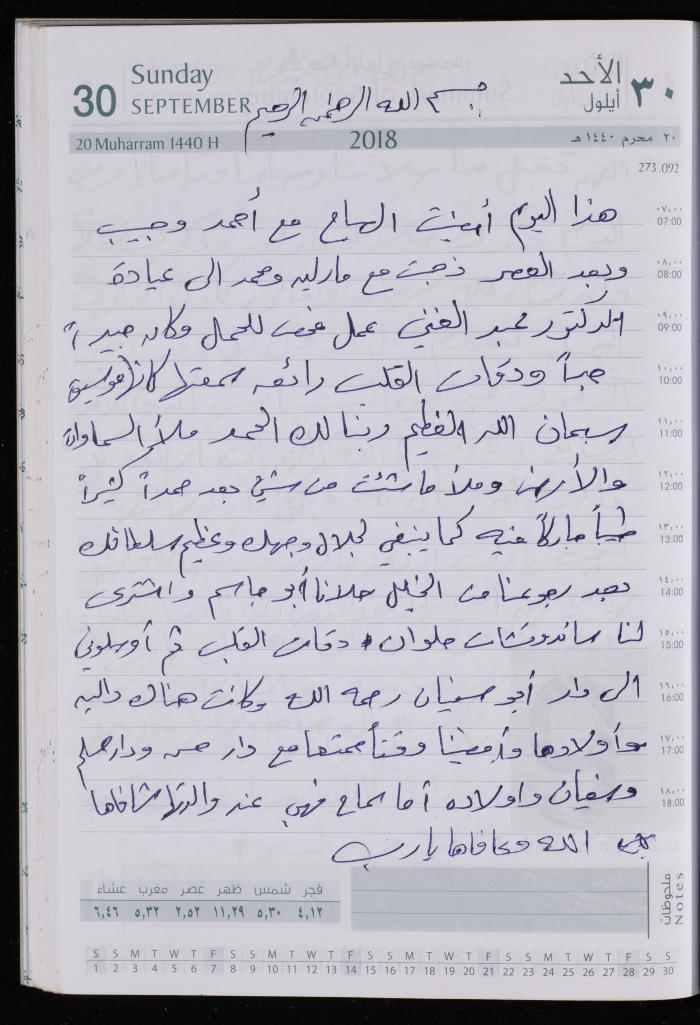 30 Sunday SEPTEMBER
الأحد أيلول ٣٠
بسم الله الرحمن الرحيم
20 Muharram 1440 H 2018 ٢٠ محرم ١٤٤٠ هـ
273.092
٠٧,٠٠ 07:00
هذا اليوم أمضيت الصباح مع أحمد وحبيب
٠٨,٠٠ 08:00
وبعد العصر ذهبت مع مارلين ومحمد الى عيادة
٠٩,٠٠ 09:00
الدكتور عبد الغني عمل فحص للحمل وكان جيداً
١٠,٠٠ 10:00
جداً ودقات القلب رائعه سمعتها كانها موسيقى
١١,٠٠ 11:00
سبحان الله العظيم ربنا لك الحمد ملأ السماوات
١٢,٠٠ 12:00
والأرض وملأ ما شئت من شيئ بعد حمداً كثيراً
١٣,٠٠ 13:00
طيباً مباركاً فيه كما ينبغي لجلال وجهك وعظيم سلطانك
١٤,٠٠ 14:00
بعد رجوعنا من الخليل حلانا أبو جاسم واشترى
١٥,٠٠ 15:00
لنا ساندوتشات حلوان دقات القلب ثم أوصلوني
١٦,٠٠ 16:00
الى دار أبو سفيان رحمه الله وكانت هناك داليه
١٧,٠٠ 17:00
وأولادها وأمضينا وقتاً ممتعا مع دار
١٨,٠٠ 18:00
وسفيان واولاده أما سماح فهي عند والدتها شافاها
الله وعافاها يا رب
فجر شمس ظهر عصر مغرب عشاء
٤,١٢ ٥,٣٠ ١١,٢٩ ٢,٥٢ ٥,٣٢ ٦,٤٦
ملحوظات Notes
S S M T W T F S S M T W T F S S M T W T F S S M T W T F S S
1 2 3 4 5 6 7 8 9 10 11 12 13 14 15 16 17 18 19 20 21 22 23 24 25 26 27 28 29 30